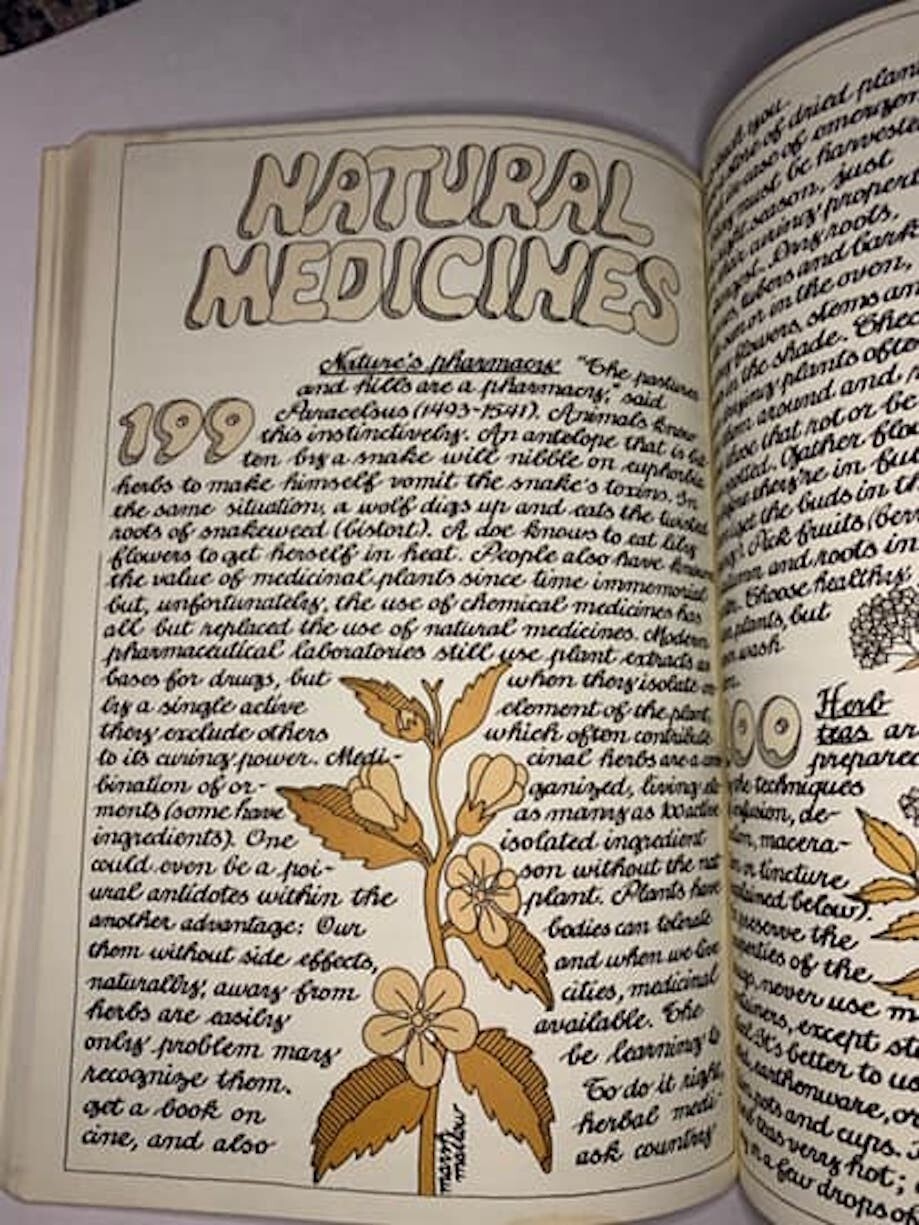 NATURAL
MEDICINES
Nature's pharmacy "The pastures
and hills are a pharmacy," said
199 Paracelsus (1493-1541). Animals know
this instinctively. An antelope that is bit-
ten by a snake will nibble on euphorbia
herbs to make himself vomit the snake's toxins. In
the same situation, a wolf digs up and eats the twisted
roots of snakeweed (bistort). A doe knows to eat lily
flowers to get herself in heat. People also have known
the value of medicinal plants since time immemorial
but, unfortunately, the use of chemical medicines has
all but replaced the use of natural medicines. Modern
pharmaceutical laboratories still use plant extracts as
bases for drugs, but when they isolate
by a single active element of the plant,
they exclude others which often contribute
to its curing power. Medi- cinal herbs are a com-
bination of or- ganized, living ele-
ments (some have as many as 100 active
ingredients). One isolated ingredient
could even be a poi- son without the nat-
ural antidotes within the plant. Plants have
another advantage: Our bodies can tolerate
them without side effects, and when we live
naturally, away from cities, medicinal
herbs are easily available. The
only problem may be learning to
recognize them. To do it right,
get a book on herbal medi-
cine, and also ask country
marsh
mallow
you
store of dried plants
in case of emergency
must be harvested
season, just
their curing properties
Dry roots,
tubers and bark
or in the oven,
flowers, stems and
in the shade. Check
drying plants often
them around and
those that rot or be
spotted. Gather flow
they're in full
get the buds in th
Pick fruits (berr
and roots in
Choose healthy,
plants, but
wash
00 Herb
teas are
prepared
the techniques
infusion, de-
macera-
or tincture
below).
preserve the
properties of the
never use m
containers, except sta
It's better to us
earthenware, or
pots and cups.
teas very hot;
in a few drops of